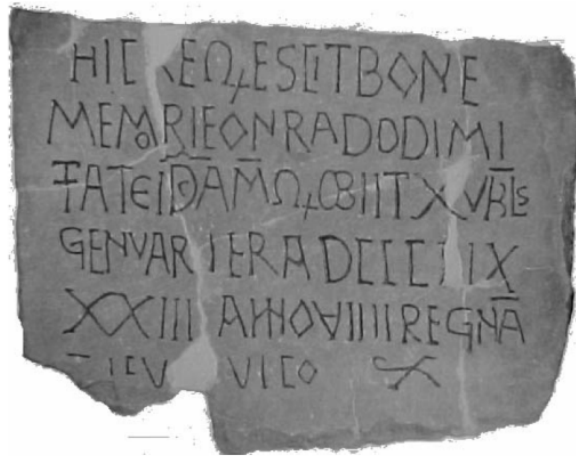 HIC REΩ+ESCIT BONE
MEMORIE ONRADO DIMI
TAT EI D AM Ω+ OBIIT XV KLS
GENVARI ERA DCCC IX
XXIII ANNO VIIII REGNA
VICO